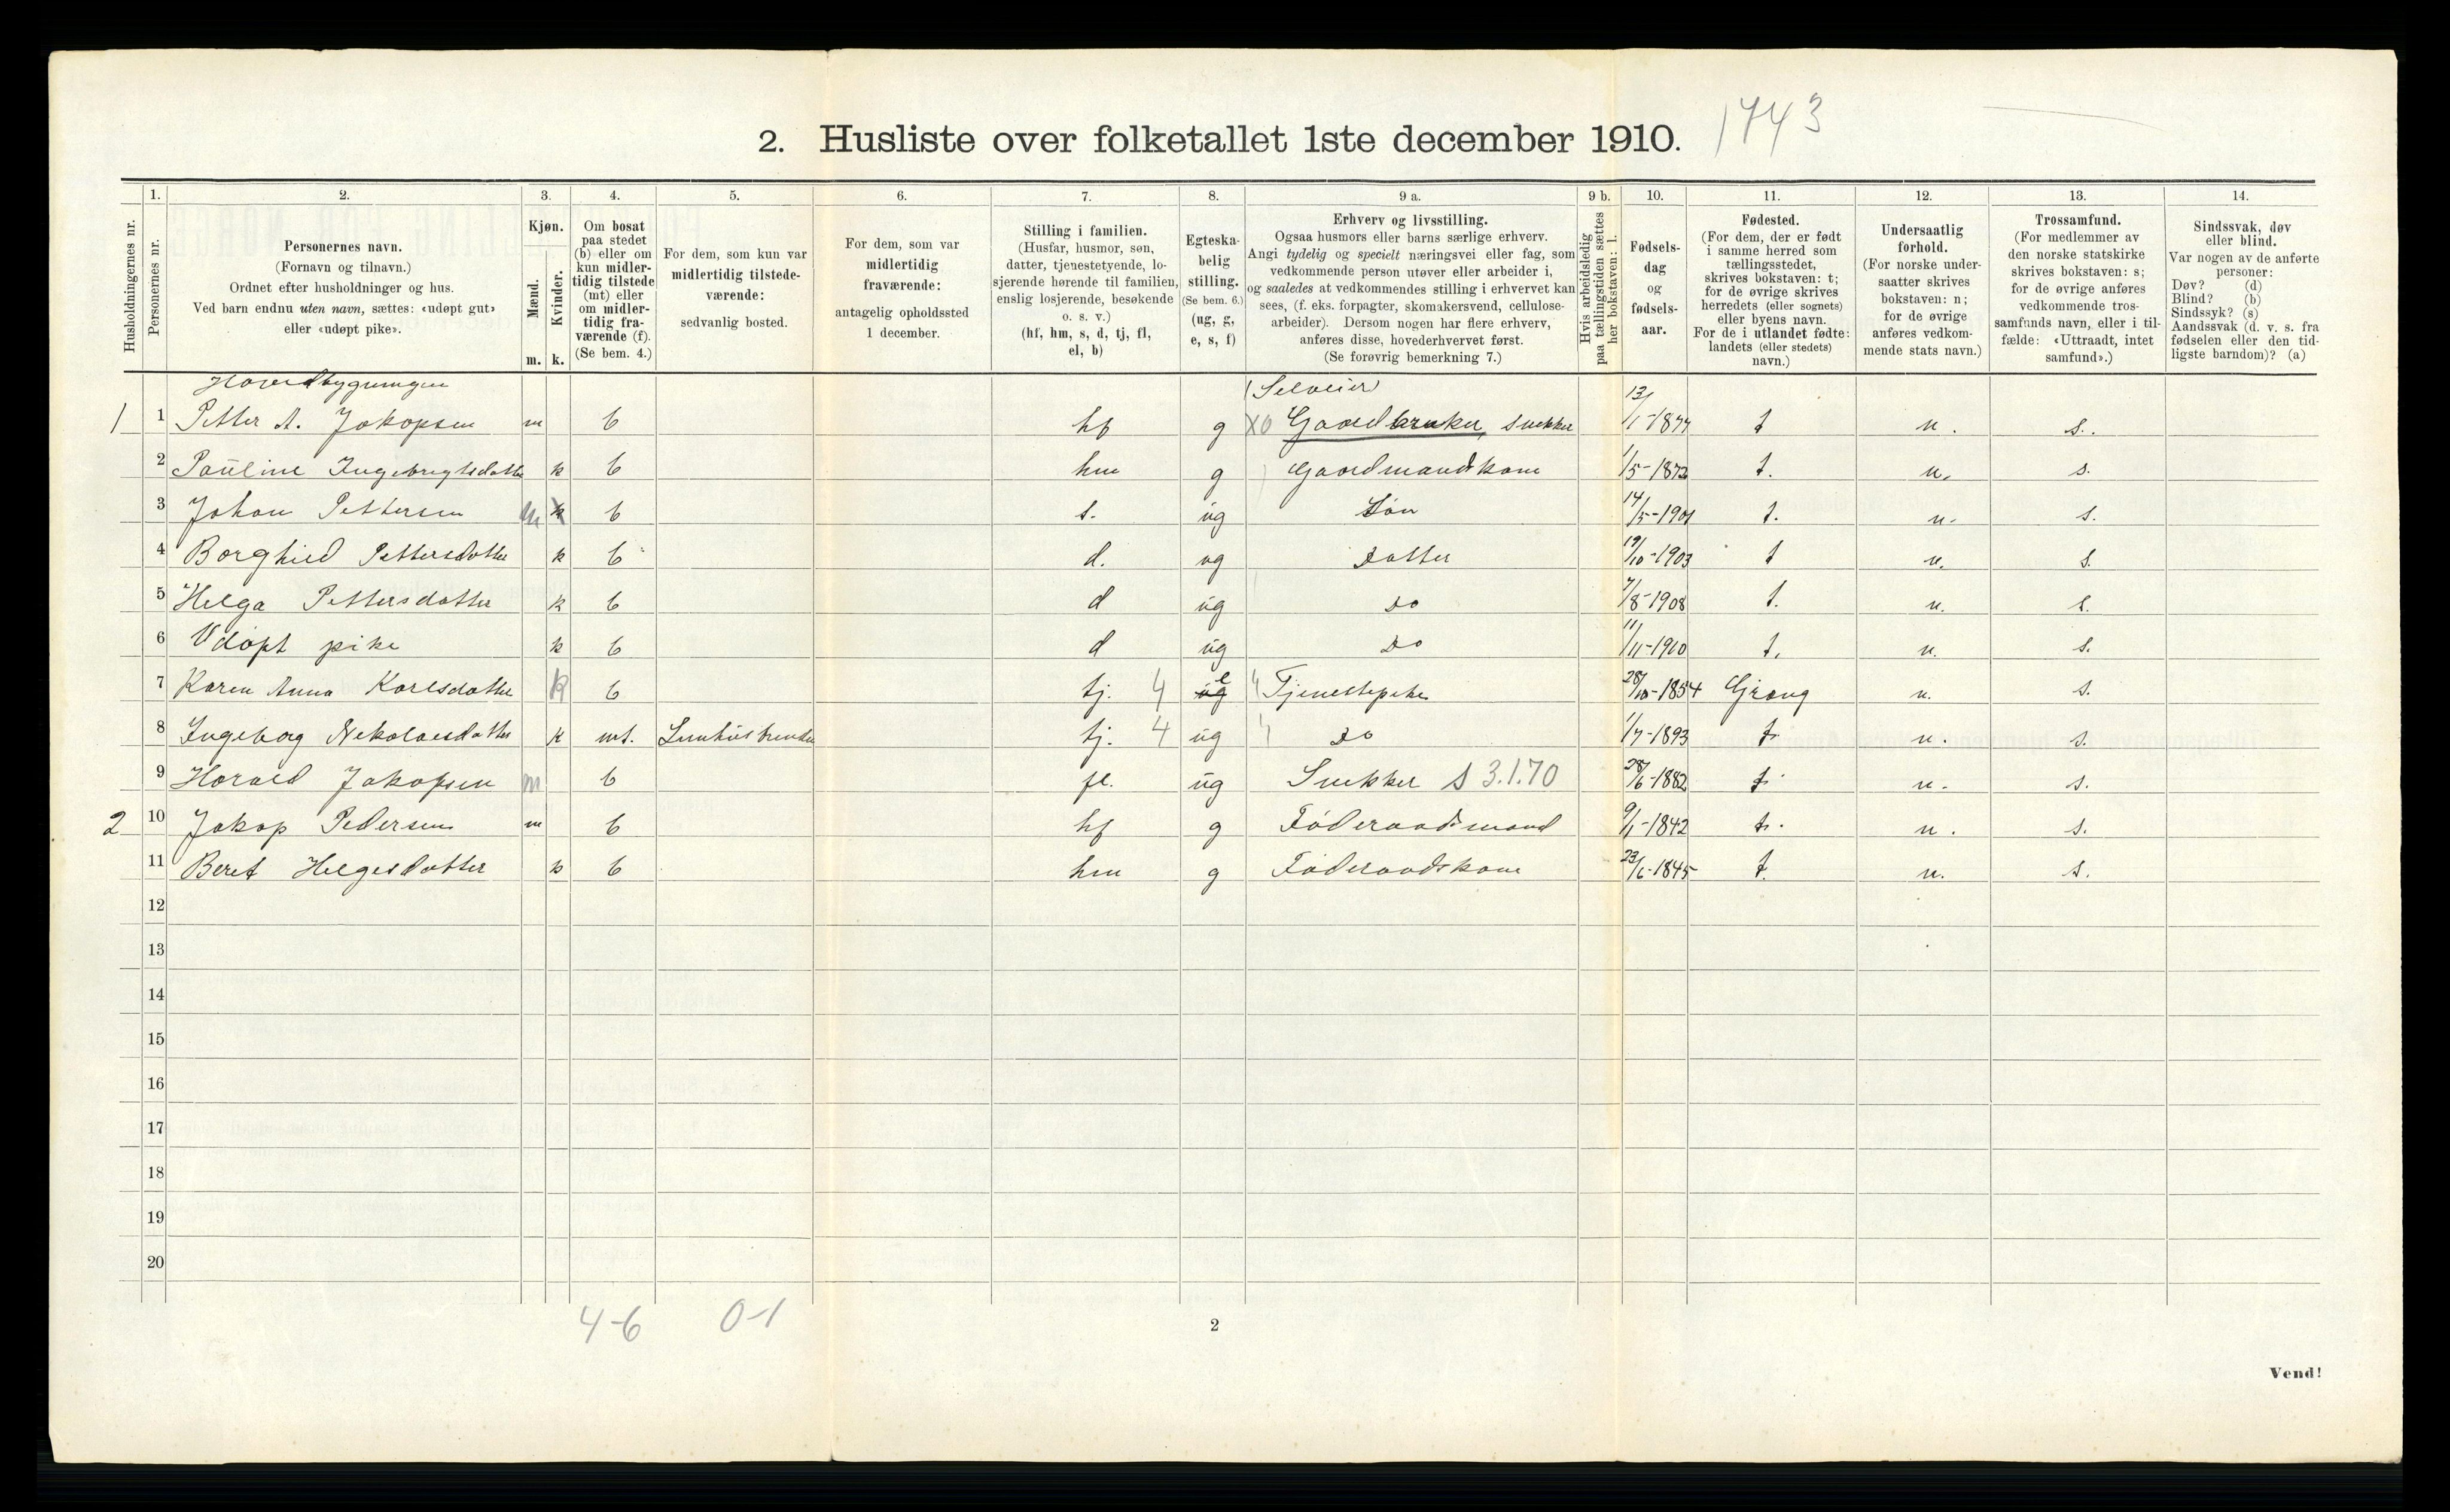 2. Husliste over folketallet 1ste december 1910. 1743
1. 2. 3. 4. 5. 6. 7. 8. 9 a. 9 b. 10. 11. 12. 13. 14.
Husholdningernes nr.
Personernes nr.
Personernes navn.
(Fornavn og tilnavn.)
Ordnet efter husholdninger og hus.
Ved barn endnu uten navn, sættes: «udøpt gut»
eller «udøpt pike».
Kjøn.
Mænd.
Kvinder.
m. k.
Om bosat
paa stedet
(b) eller om
kun midler-
tidig tilstede
(mt) eller
om midler-
tidig fra-
værende (f).
(Se bem. 4.)
For dem, som kun var
midlertidig tilstede-
værende:
sedvanlig bosted.
For dem, som var
midlertidig
fraværende:
antagelig opholdssted
1 december.
Stilling i familien.
(Husfar, husmor, søn,
datter, tjenestetyende, lo-
sjerende hørende til familien,
enslig losjerende, besøkende
o. s. v.)
(hf, hm, s, d, tj, fl,
el, b)
Egteska-
belig
stilling.
(Se bem. 6.)
(ug, g,
e, s, f)
Erhverv og livsstilling.
Ogsaa husmors eller barns særlige erhverv.
Angi tydelig og specielt næringsvei eller fag, som
vedkommende person utøver eller arbeider i,
og saaledes at vedkommendes stilling i erhvervet kan
sees, (f. eks. forpagter, skomakersvend, cellulose-
arbeider). Dersom nogen har flere erhverv,
anføres disse, hovederhvervet først.
(Se forøvrig bemerkning 7.)
Hvis arbeidsledig
paa tællingstiden sættes
her bokstaven: l.
Fødsels-
dag
og
fødsels-
aar.
Fødested.
(For dem, der er født
i samme herred som
tællingsstedet,
skrives bokstaven: t;
for de øvrige skrives
herredets (eller sognets)
eller byens navn.
For de i utlandet fødte:
landets (eller stedets)
navn.)
Undersaatlig
forhold.
(For norske under-
saatter skrives
bokstaven: n;
for de øvrige
anføres vedkom-
mende stats navn.)
Trossamfund.
(For medlemmer av
den norske statskirke
skrives bokstaven: s;
for de øvrige anføres
vedkommende tros-
samfunds navn, eller i til-
fælde: «Uttraadt, intet
samfund».)
Sindssvak, døv
eller blind.
Var nogen av de anførte
personer:
Døv? (d)
Blind? (b)
Sindssyk? (s)
Aandssvak (d. v. s. fra
fødselen eller den tid-
ligste barndom)? (a)
Hovedbygningen (Selveier)
1 1 Petter A. Jakopsen m b hf g X0 Gaardbruker, snekker 13/1-1877 t n. s.
2 Pauline Ingebrigtsdatter k b hm g Gaardmandskone 1/5-1872 t. n. s.
3 Johan Pettersen m k b s. ug Søn 14/5-1901 t. n. s.
4 Borghild Pettersdatter k b d. ug Datter 19/10-1903 t n. s.
5 Helga Pettersdatter k b d ug Do 7/8-1908 t. n. s.
6 Udøpt pike k b d ug Do 11/11-1910 t. n. s.
7 Karen Anna Karlsdatter k b tj. 4 ug e Tjenestepike 28/10-1854 Grong n. s.
8 Ingeborg Nekolaisdatter k mt. tj. 4 ug Do 1/7-1893 t. n. s.
9 Harald Jakopsen m b fl. ug Snekker S 3.1.70 28/6-1882 t. n. s.
2 10 Jakop Pedersen m b hf g Føderaadsmand 9/1-1842 t. n. s.
11 Beret Helgesdatter k b hm g Føderaadskone 23/6-1845 t. n. s.
12
13
14
15
16
17
18
19
20
4-6 0-1
2
Vend!